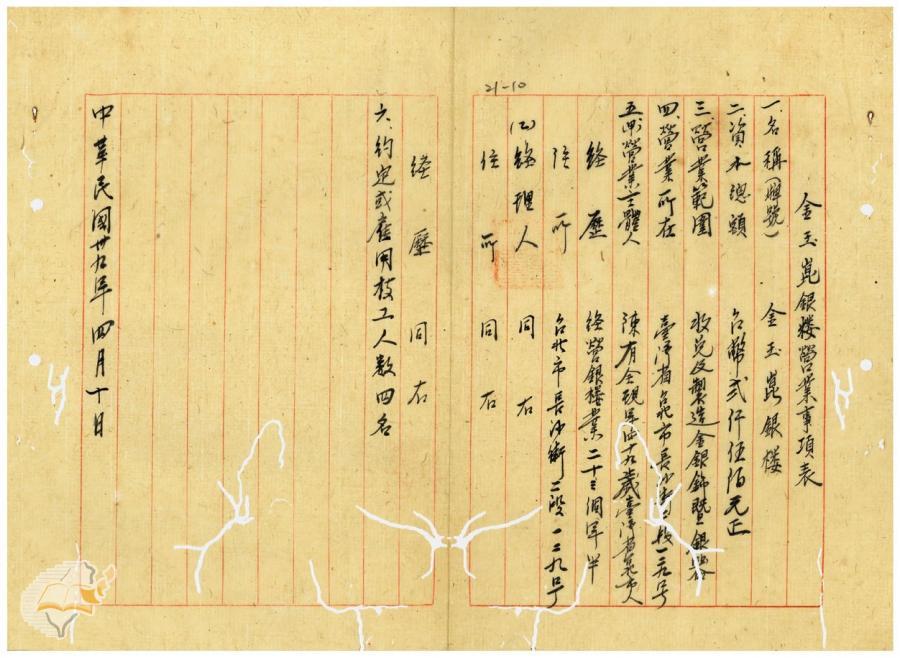 21-10
金玉崑銀楼營業事項表
一、名稱（牌號） 金玉崑銀楼
二、資本總額 台幣弍仟伍佰元正
三、營業範圍 收兌及製造金銀飾暨銀器
四、營業所在 臺湾省台北市長沙街二段一二九号
五、甲營業主體人 陳有全現年 十九歲臺湾省台北市人
經歷 經營銀楼業二十三個年半
住所 台北市長沙街二段一二九号
(乙)經理人 同右
住所 同右
經歷 同右
六、約定或雇用技工人数四名
中華民國卅九年四月十日